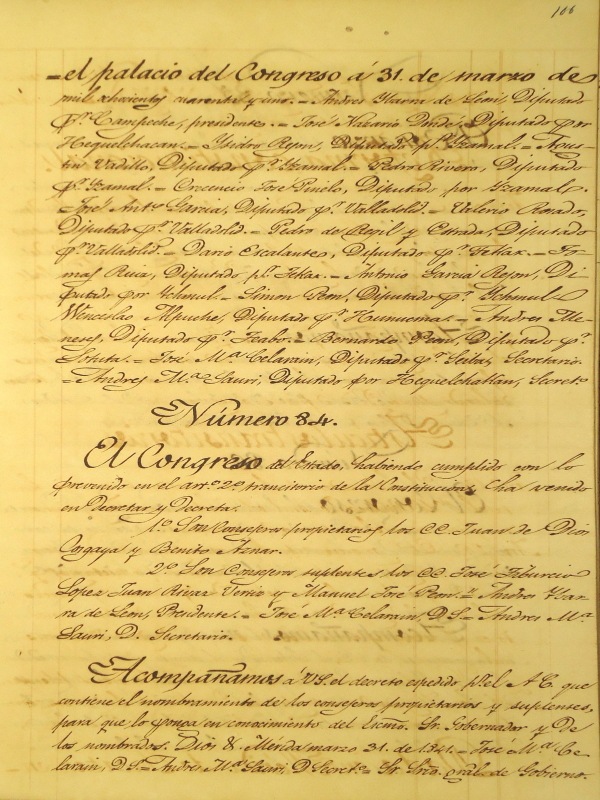 106
el palacio del Congreso á 31. de marzo de
mil ochocientos cuarenta y uno.= Andres Ybarra de Leon, Diputado
pr. Campeche, presidente.= José Nazario Donde, Diputado por
Hequelchacan.= Ysidro Rejon, Diputado pr. Yzamal.= Agus-
tin Vadillo, Diputado pr. Yzamal.= Pedro Rivero, Diputado
pr. Yzamal.= Crecencio José Pinelo, Diputado por Yzamal.=
José Anto. Garcia, Diputado pr. Valladolid.= Valerio Rosado,
Diputado pr. Valladolid.= Pedro de Regil y Estrada, Diputado
pr. Valladolid.= Dario Escalante, Diputado pr. Tekax.= To-
mas Ruz, Diputado pr. Tekax.= Antonio Garcia Rejon, Di-
putado por Ychmul.= Simon Peon, Diputado pr. Ychmul.=
Wenceslao Alpuche, Diputado pr. Hunucmá.= Andres Me-
neses, Diputado pr. Teabo.= Bernardo Peon, Diputado pr.
Sotuta.= José Ma. Celarain, Diputado pr. Seiba, Secretario.
=Andres Ma. Sauri, Diputado por Hequelchakan, Secreto.
Número 84.
El Congreso del Estado, habiendo cumplido con lo
prevenido en el arto. 2o. transitorio de la Constitucion, ha venido
en decretar y Decreta.
1o. Son Consejeros propietarios los CC. Juan de Dios
Cosgaya y Benito Aznar.
2o. Son Consejeros suplentes los CC. José Tiburcio
Lopez Juan Rivas Vertiz y Manuel José Peon.= Andres Ybar-
ra de Leon, Presidente.= José Ma. Celarain, D. S.= Andres Ma.
Sauri, D. Secretario.
Acompañamos á V.S. el decreto espedido pr. el A. C. que
contiene el nombramiento de los consejeros propietarios y suplentes,
para que lo ponga en conocimiento del Escmo. Sr. Gobernador y De
los nombrados. Dios &. Mérida marzo 31. de 1841.= Jose Ma. Ce-
larain, D. S.= Andres Ma. Sauri, D. Secreto.= Sr. Srio. gral. de Gobierno.